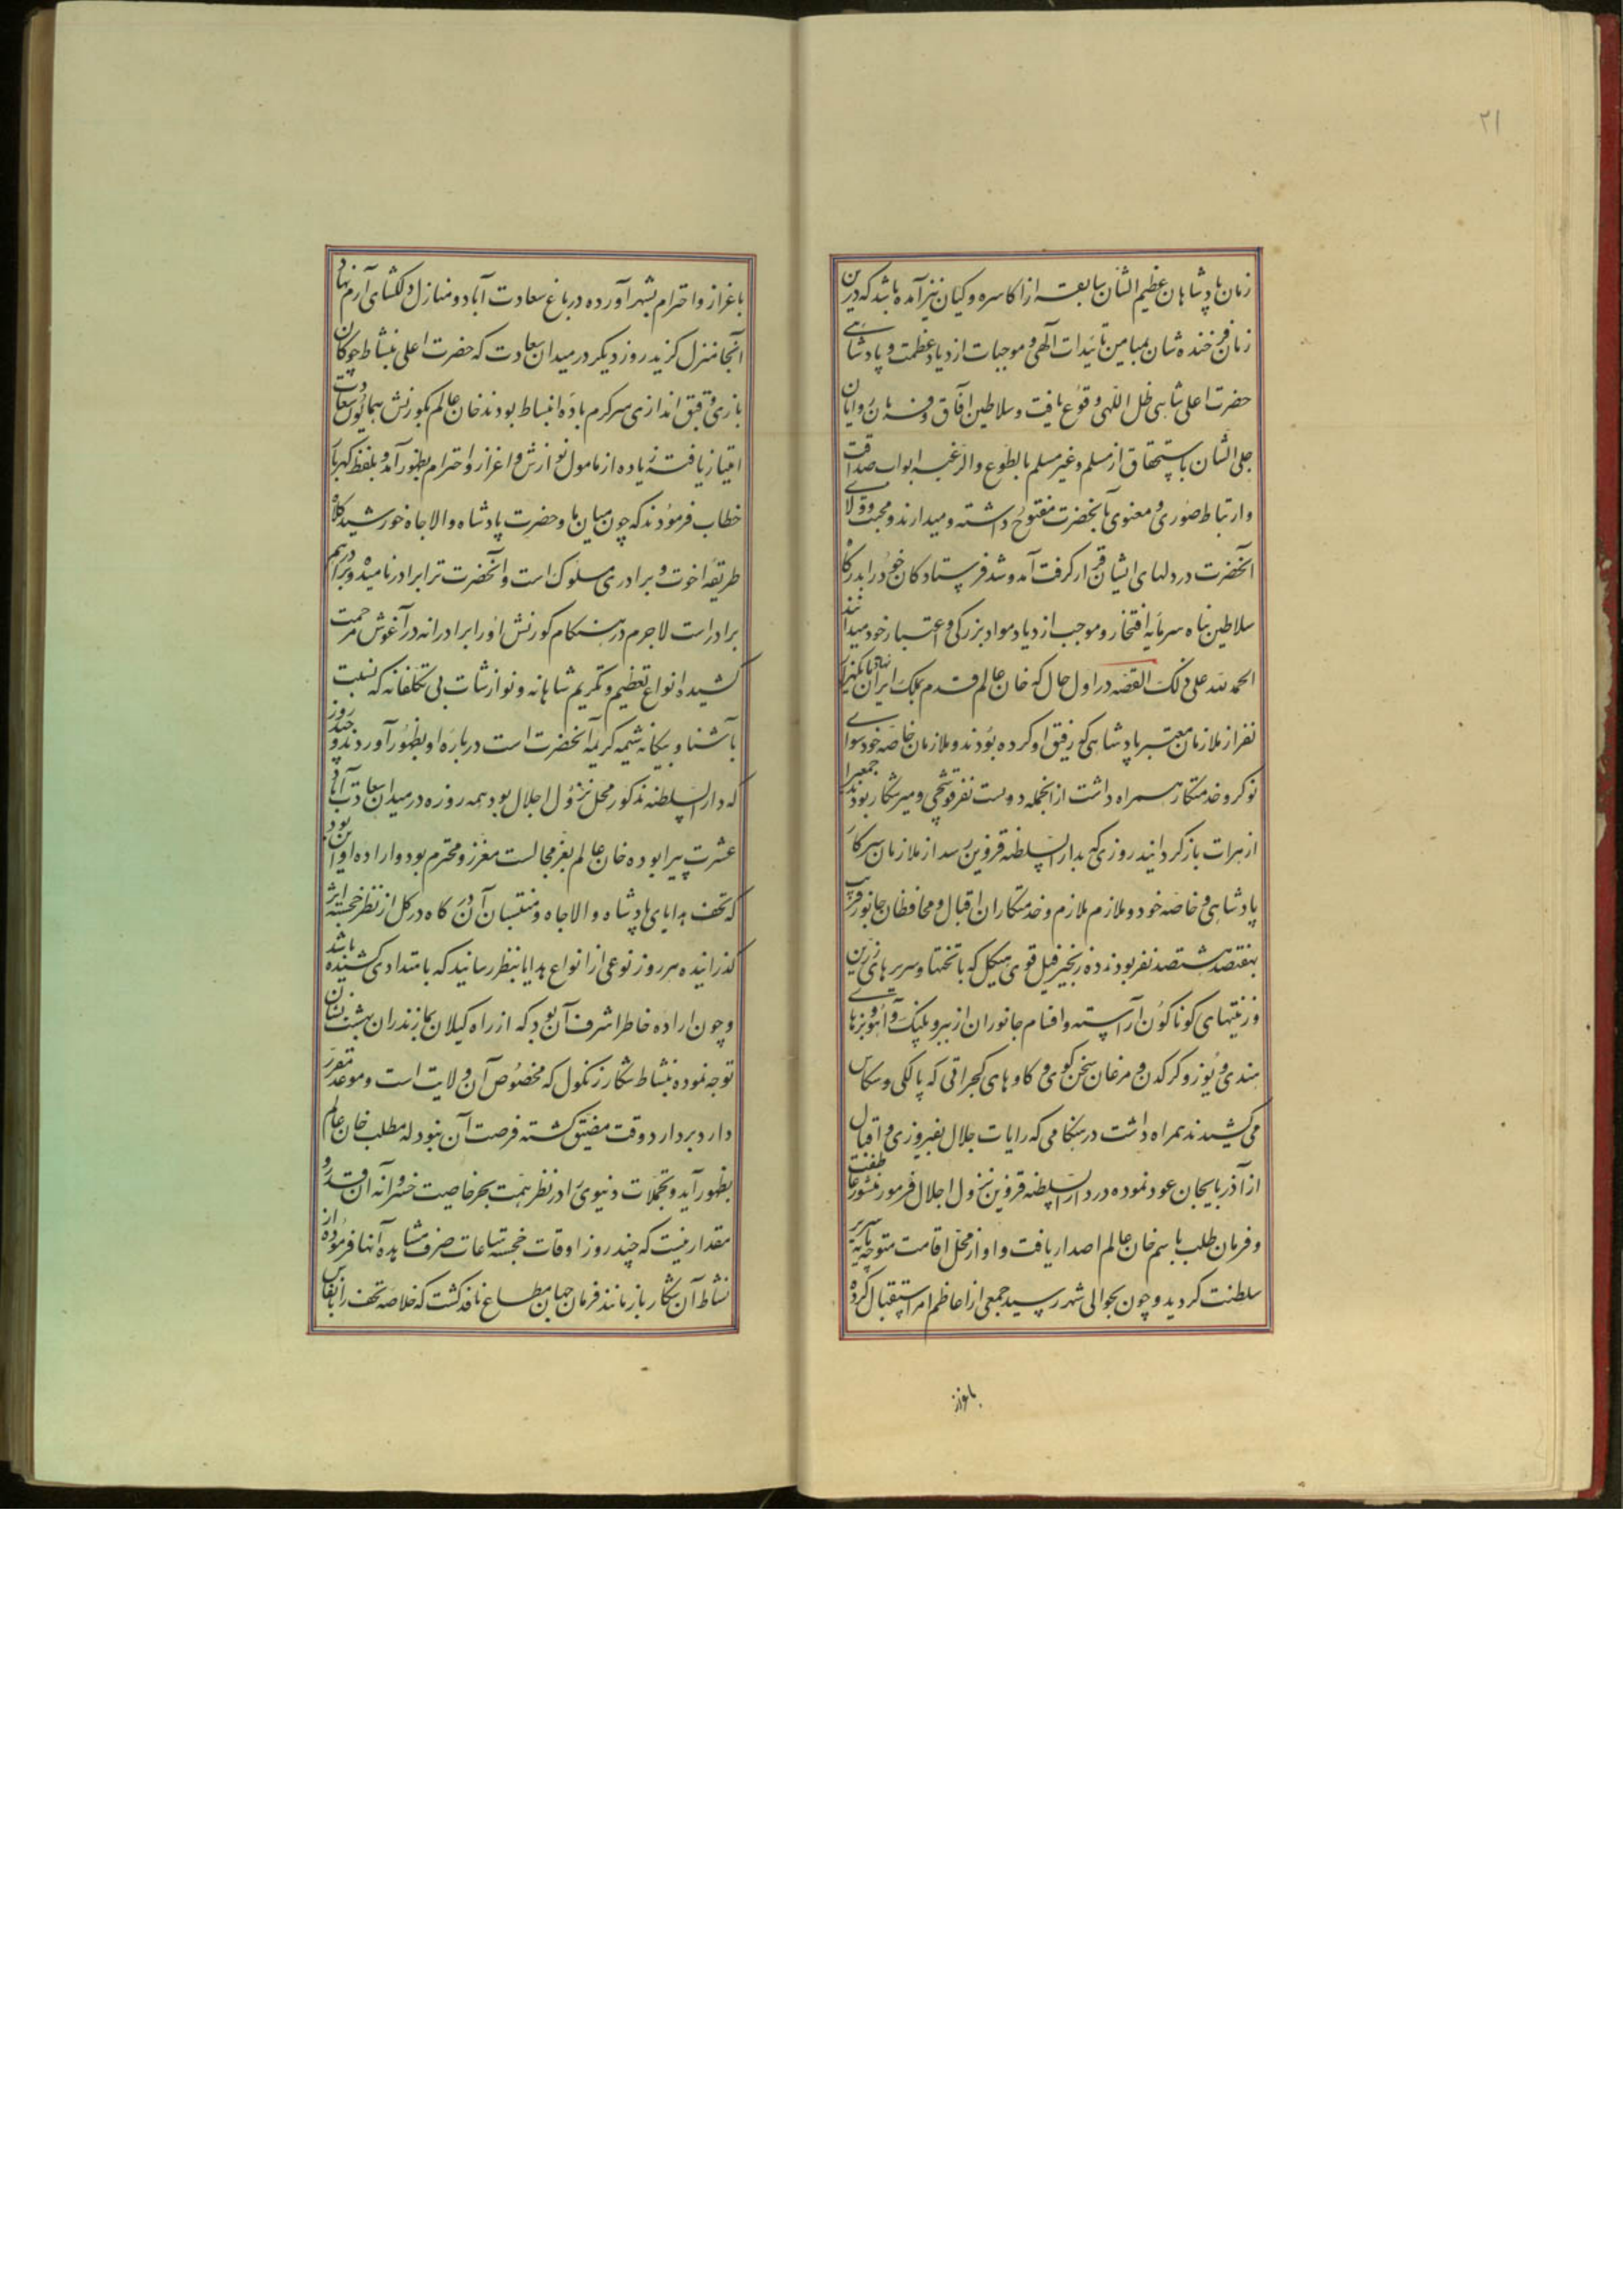 ۲۱
زمان پادشاهان عظیم الشان سابقه از اکاسره و کیان نیز آمده باشد که درین
زمان فرخنده شان بمیامن تائیدات آلهی و موجبات ازدیاد عظمت و پادشاهی
حضرت اعلی شاهی ظل اللهی وقوع یافت و سلاطین آفاق و فرمان روایان
جلی الشان باستحقاق از مسلم و غیر مسلم بالطوع والرغبه ابواب صداقت
و ارتباط صوری و معنوی بآنحضرت مفتوح داشته و میدارند و محبت و ولای
آنحضرت در دلهای ایشان قرار گرفت آمد و شد فرستادکان خود را بدرگاه
سلاطین پناه سرمایه افتخار و موجب ازدیاد مواد بزرکی و اعتبار خود میدانند
الحمد لله علی ذلک القصه در اول حال که خان عالم قدم بملک ایران نهاد یکهزار
نفر از ملازمان معتبر پادشاهی که رفیق او کرده بودند و ملازمان خاصه خود سوای
نوکر و خدمتکار همراه داشت از انجمله دویست نفر قوشچی و میرشکار بودند جمعیرا
از هرات باز کردانید روزی که بدار السلطنه قزوین رسید از ملازمان سرکار
پادشاهی و خاصه خود و ملازم ملازم و خدمتکاران اقبال و محافظان جانور قریب
بهفتصد هشتصد نفر بودند ده زنجیر فیل قوی هیکل که با تختها و سریرهای زرین
و زینتهای کوناکون آراسته و اقسام جانوران از ببر و پلنک و آهو و بزهای
هندی و یوز و کرکدن و مرغان سخن کوی و کاوهای کجراتی که پالکی و سکاس
می کشیدند همراه داشت در هنکامی که رایات جلال بفیروزی و اقبال
از آذربایجان عود نموده در دار السلطنه قزوین نزول اجلال فرمود منشور عاطفت
و فرمان طلب باسم خان عالم اصدار یافت و او از محل اقامت متوجه پایه سریر
سلطنت کردید و چون بحوالی شهر رسید جمعی از اعاظم امرا استقبال کرده
باعزاز
باعزاز و احترام بشهر آورده در باغ سعادت آباد و منازل دلکشای آرم نهاد
آنجا منزل کزید روز دیکر در میدان سعادت که حضرت اعلی بنشاط چوکان
بازی و قبق اندازی سرکرم باده انبساط بودند خان عالم بکورنش همایون سعادت
امتیاز یافته زیاده از مامول نوازش و اعزاز و احترام بظهور آمد و بلفظ کهربار
خطاب فرمودند که چون میان ما و حضرت پادشاه والاجاه خورشید کلاه
طریقه اخوت و برادری مسلوک است و آنحضرت ترا برادر نامیده و برادر هم
برادر است لاجرم در هنکام کورنش او را برادرانه در آغوش مرحمت
کشیده انواع تعظیم و تکریم شاهانه و نوازشات بی تکلفانه که نسبت
بآشنا و بیکانه شیمه کریمه آنحضرت است درباره او بظهور آوردند و چند روز
که دار السلطنه مذکور محل نزول اجلال بود همه روزه در میدان سعادت آباد
عشرت پیرا بوده خان عالم بعز مجالست معزز و محترم بود و اراده او این بود
که تحف هدایای پادشاه والاجاه و منتسبان آن درگاه در کل از نظر خجسته اثر
کذرانیده هر روز نوعی از انواع هدایا بنظر رسانید که بامتدادی کشیده باشد
و چون اراده خاطر اشرف آن بود که از راه کیلان بمازندران بهشت نشان
توجه نموده بنشاط شکار زنکول که مخصوص آن ولایت است و موعد مقرر
دارد بردارد وقت مضیق کشته فرصت آن نبود که مطلب خان عالم
بظهور آید و تجملات دنیوی را در نظر همت بحر خاصیت خسروانه آن قدر و
مقدار نیست که چند روز اوقات خجسته ساعات صرف مشاهده آنها فرموده از
نشاط آن شکار باز مانند فرمان جهان مطاع نافذ کشت که خلاصه تحف را بانفاس